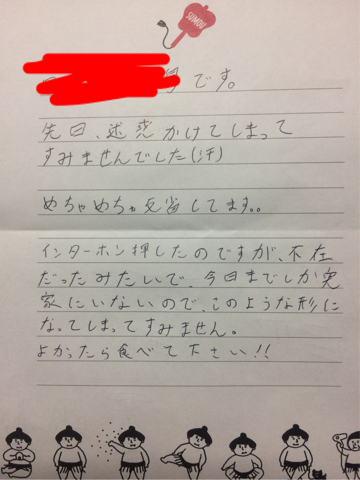 SUMOU
号です。
先日、迷惑かけてしまって
すみませんでした(汗)
めちゃめちゃ反省してます。。
インターホン押したのですが、不在
だったみたいで、今日までしか実
家にいないので、このような形に
なってしまってすみません。
よかったら食べて下さい!!